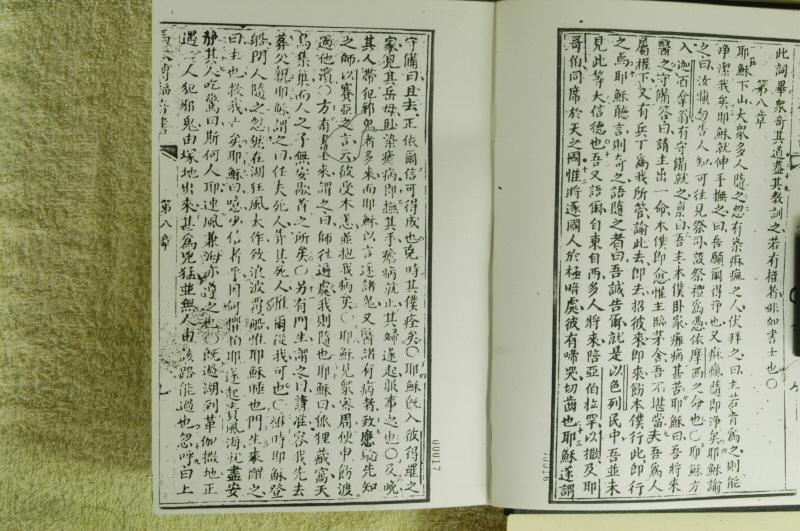 此詞畢眾奇其道蓋其教訓之若有權者非如書士也○
第八章
耶穌下山大眾多人隨之忽有染痳瘋之人伏拜之曰主若肯為之則能
淨潔我矣耶穌就伸手撫之曰吾願爾得淨也又痳瘋隨即淨矣耶穌諭
之曰汝慎勿告人知可往見祭司設祭禮為憑依摩西之命也○耶穌方
入迦百拿翁有守備就之稟曰吾主本僕臥家癱病甚苦耶穌曰吾將來
醫之守備答曰請主出一命本僕即愈惟主臨茅舍吾不堪當夫吾為人
屬權下又有兵丁為我所管諭此去即去招彼來即來飭本僕行此即行
之焉耶穌聽言則奇之語隨之者曰吾誠告爾就是以色列民中吾並未
見此等大信德也吾又語爾自東自西多人將來陪亞伯拉罕以撒及耶
哥伯同席於天之國惟將逐國人於極暗處彼有啼哭切齒也耶穌遂謂
00016
守備曰且去正依爾信可得成也克時其僕痊矣○耶穌既入彼得羅之
家見其岳母臥染瘧病即撫其手瘧病就止其婦遂起服事之也○及晚
其人帶犯邪鬼者多來而耶穌以言逐諸鬼又醫諸有病者致應驗先知
之師以賽亞之言云彼受本恙並抱我病矣○耶穌見眾家周使申飭渡
過他濱○方有書士來謂之曰師往遍處我則隨也耶穌曰狐狸藏窩天
鳥集巢而人之子無安歇首之所矣○另有門生謂之曰請准容我先去
葬父親耶穌謂之曰任夫死人葬其死人惟爾從我可也○維時耶穌登
船門人隨之忽然在湖狂風大作致浪波覆船惟耶穌睡也門生來醒之
曰主也救我亡矣耶穌曰噫少信者乎因何懼怕耶遂起責風海就盡安
靜其人吃驚曰斯何人耶連風兼海亦遵之也○既過湖到革伽撒地正
遇二人犯邪鬼由塚地出來甚為兇猛並無人由該路能過也忽呼曰上
第八章
00017